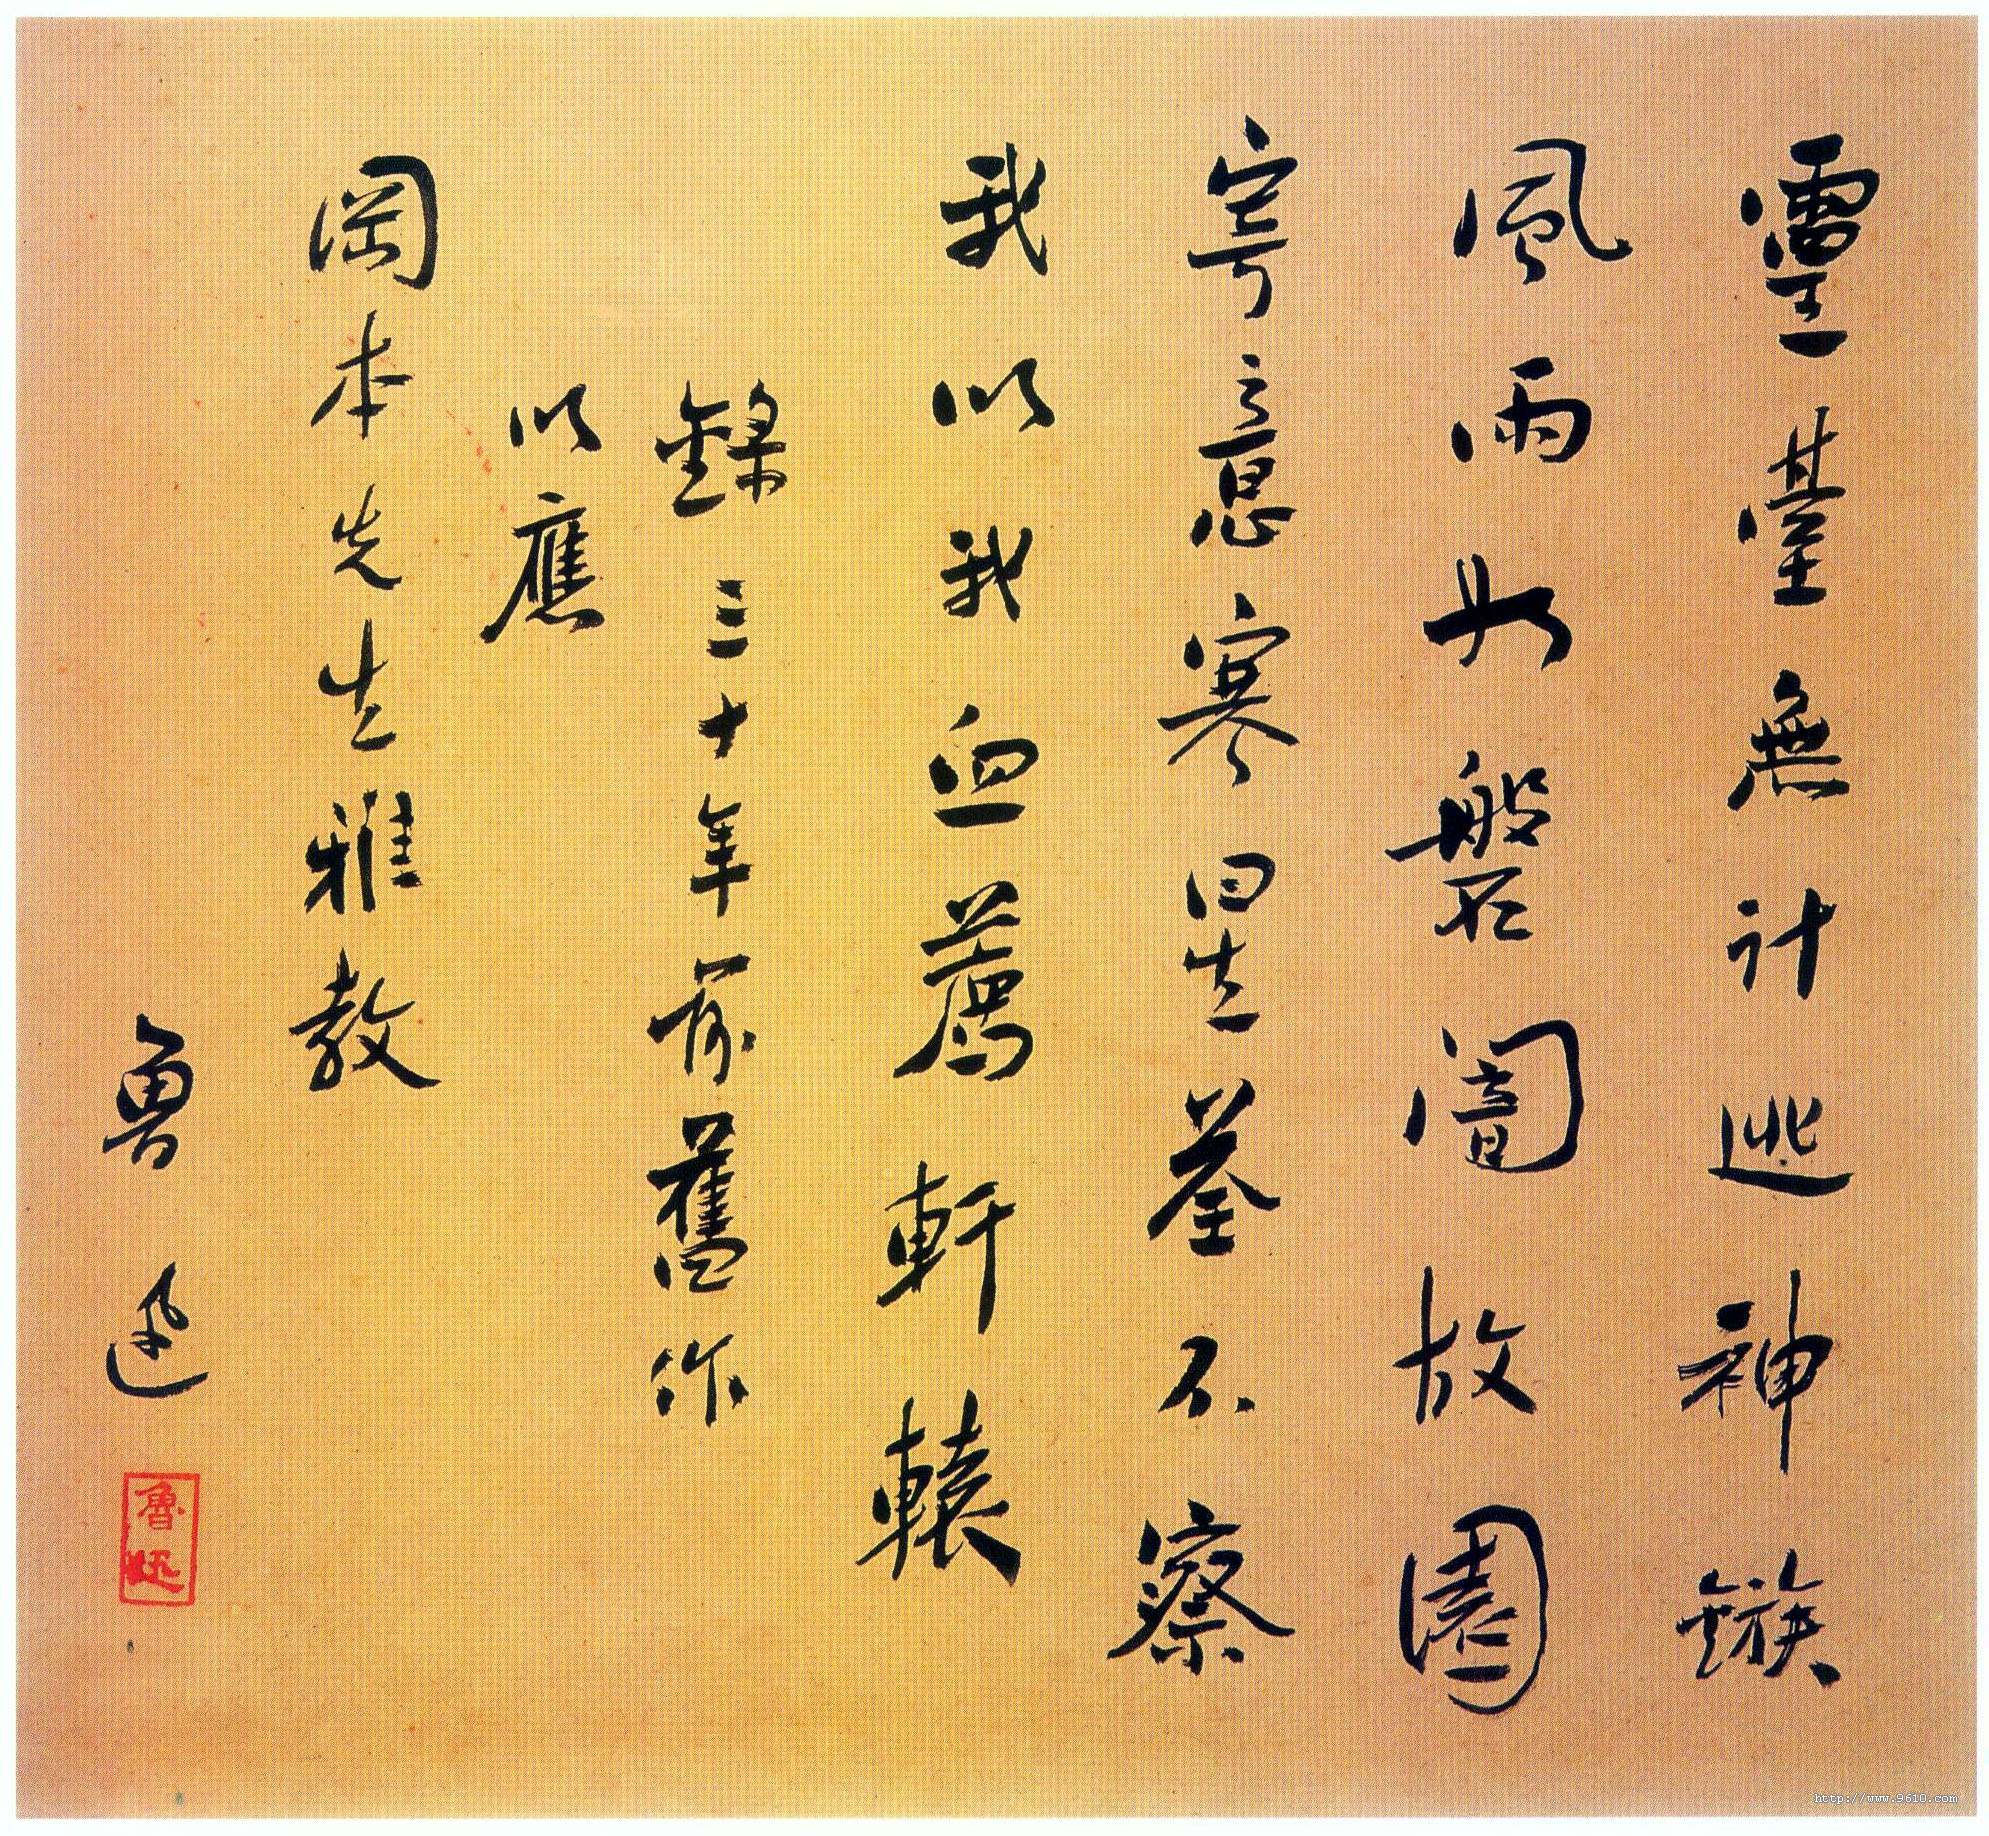 靈臺無計逃神鏃
風雨如磐闇故園
寄意寒星荃不察
我以我血薦軒轅
錄三十年前舊作
以應
岡本先生雅教
魯迅
魯迅
http://www.9610.com